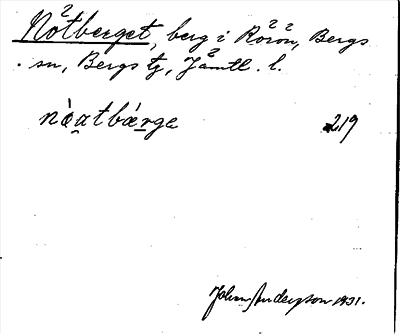 Nåtberget, berg i Rörön, Bergs
sn, Bergs tg, Jämtl. l.
nàatbǽrge 219
John Anderson 1931.